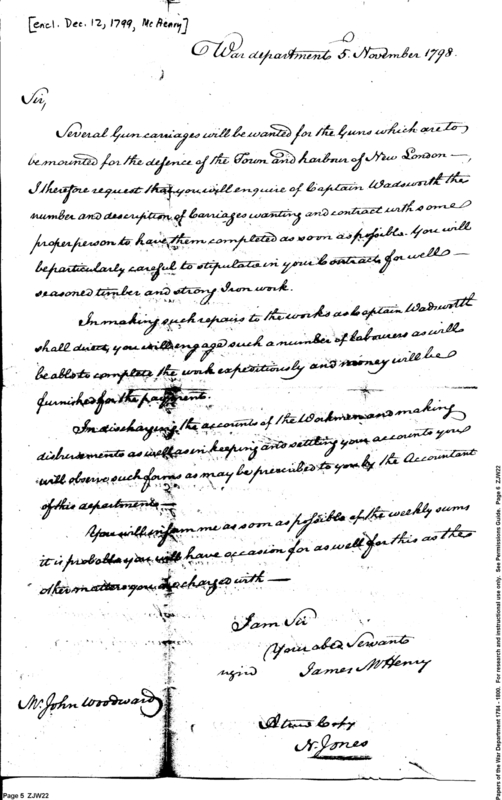 [encl. Dec. 12, 1799, McHenry]
War department 5. November 1798.
Sir,
Several Gun carriages will be wanted for the Guns which are to
be mounted for the defence of the Town and harbour of New London —
I therefore request that you will enquire of Captain Wadsworth the
number and description of Carriages wanting and contract with some
proper person to have them completed as soon as possible. You will
be particularly careful to stipulate in your Contract, for well —
seasoned timber and strong Iron work.
In making such repairs to the works as Captain Wadsworth
shall direct, you will engage such a number of labourers as will
be able to complete the work expeditiously and money will be
furnished for the payment.
In discharging the accounts of the Workmen and making
disbursements as well as in keeping and settling your accounts you
will observe such forms as may be prescribed to you by the Accountant
of this department —
You will inform me as soon as possible of the weekly sums
it is probable you will have occasion for as well for this as the
other matters you are charged with —
I am Sir
Your obed Servant
James McHenry
Mr. John Woodward
A true Copy
N. Jones
Page 5 ZJW22
Papers of the War Department 1784 - 1800. For research and instructional use only. See Permissions Guide. Page 5 ZJW22